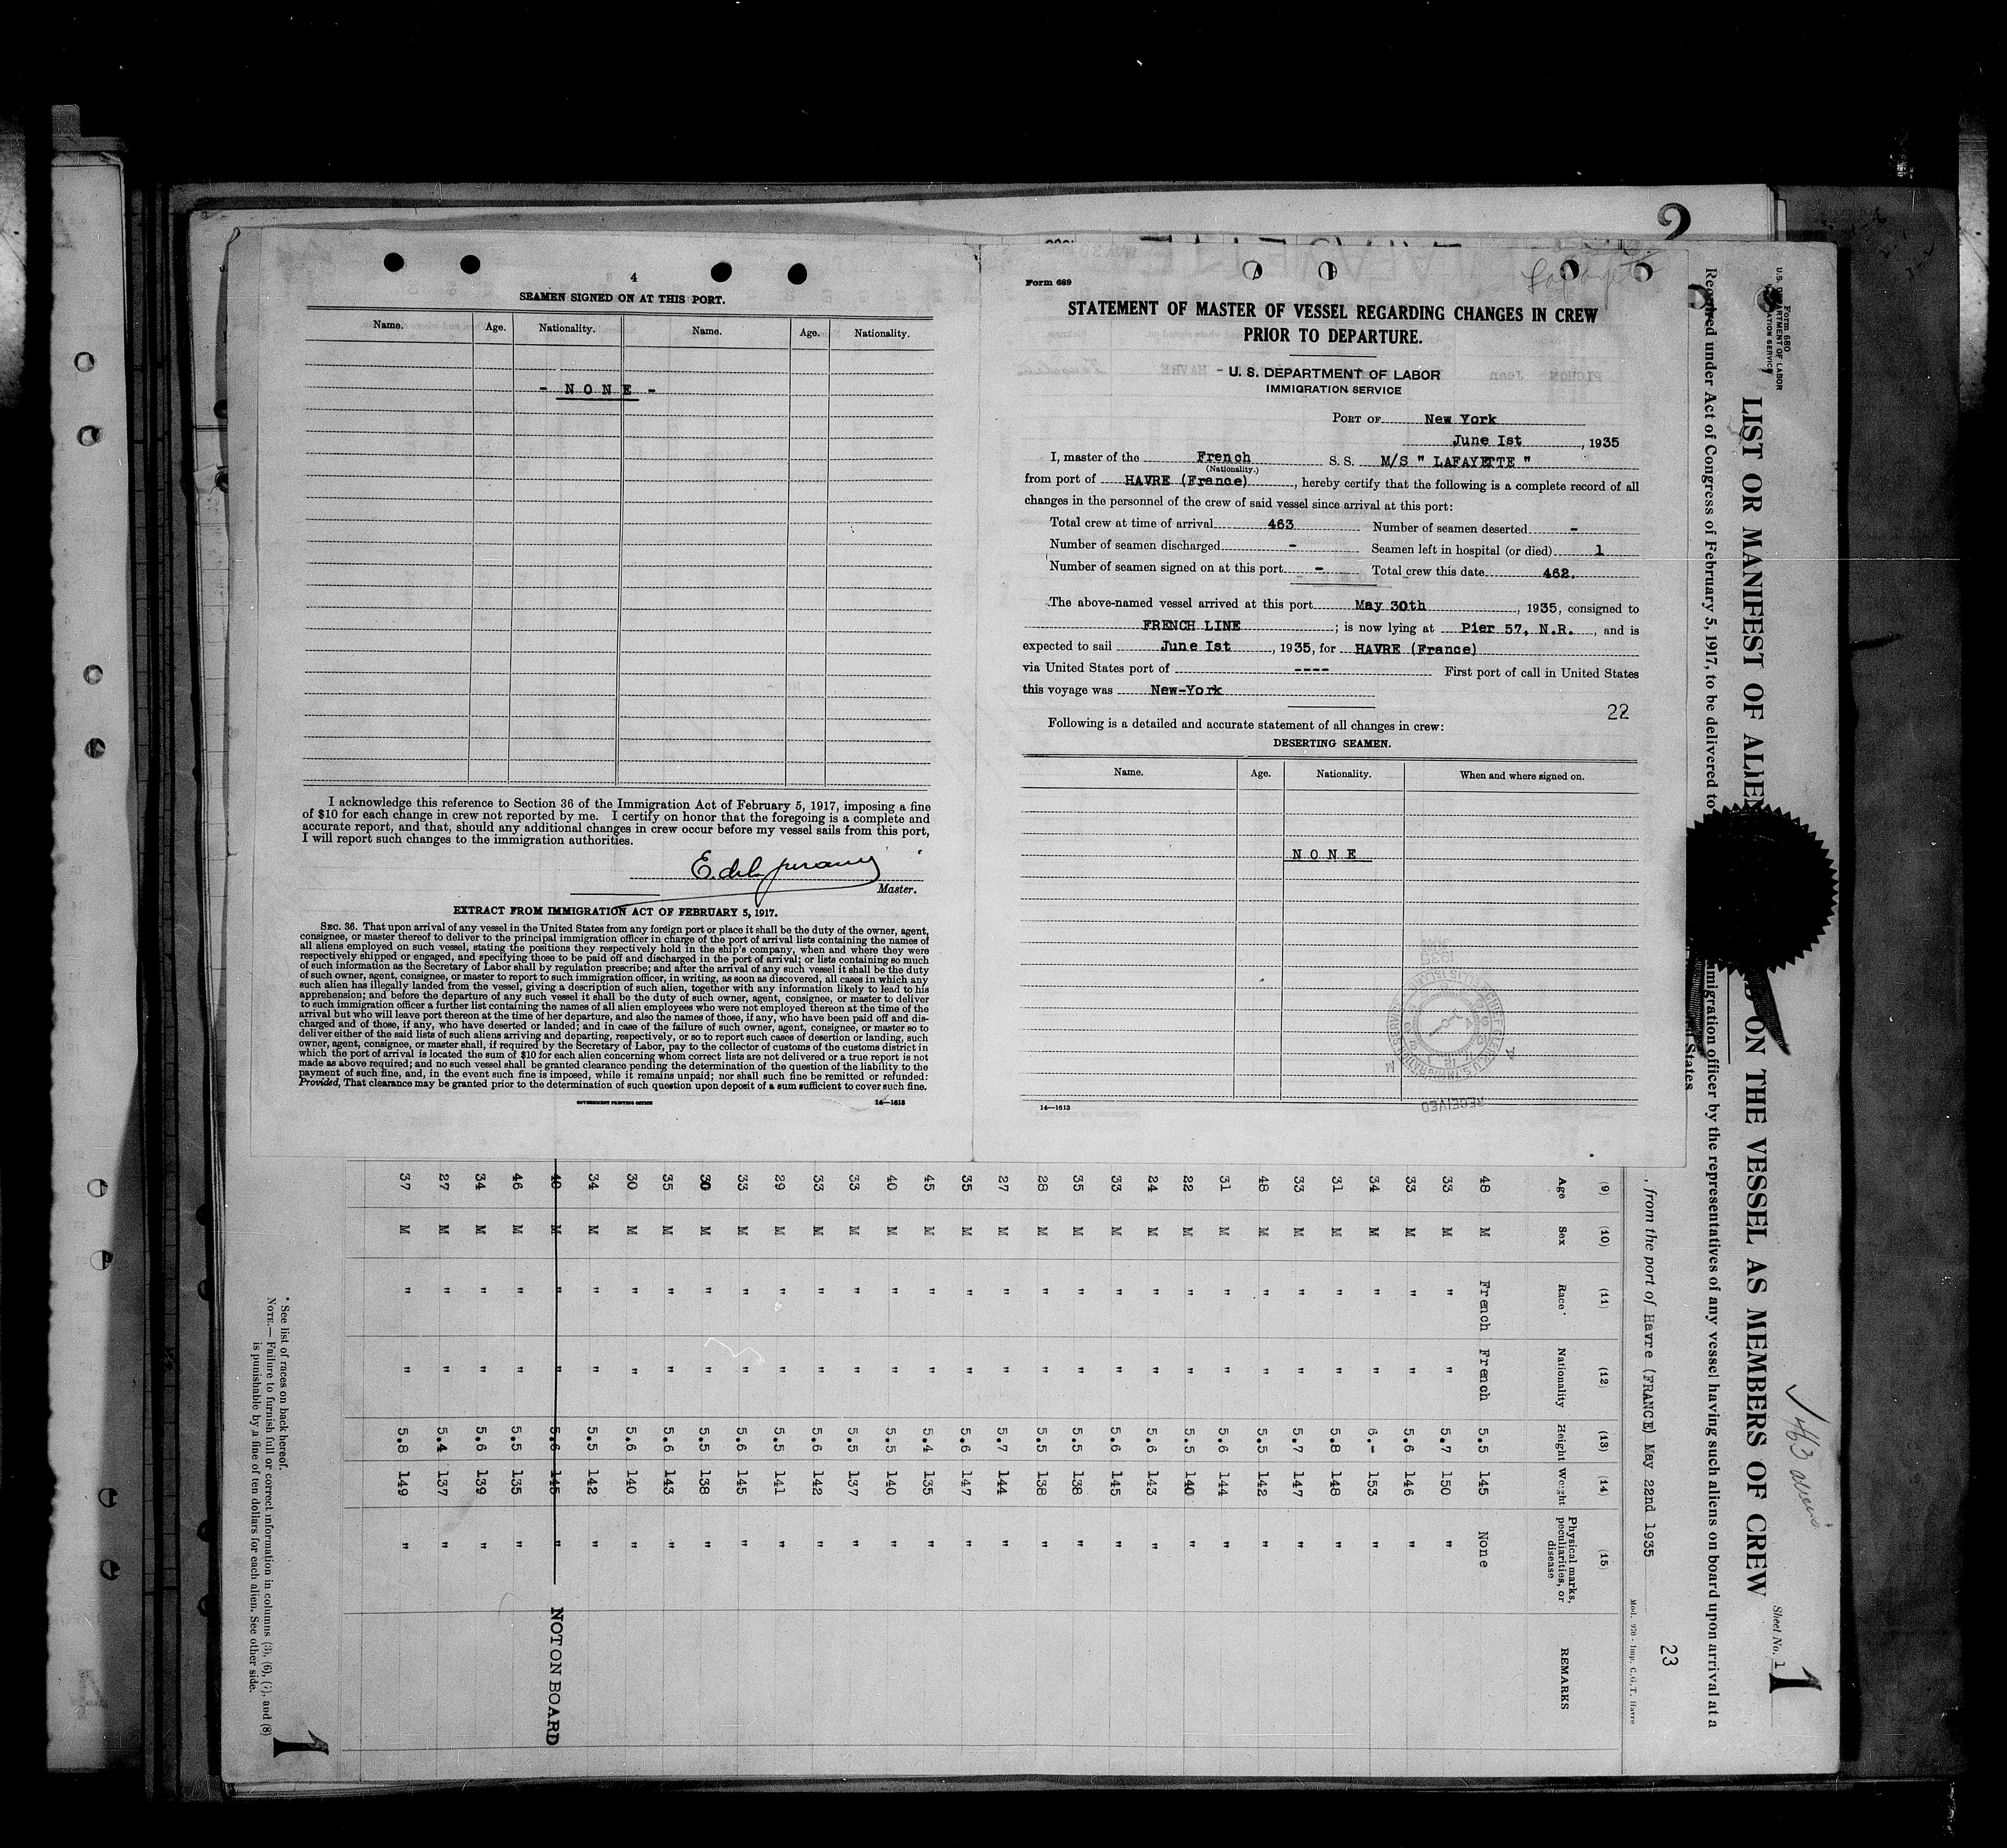 4
SEAMEN SIGNED ON AT THIS PORT.
Name. Age. Nationality. Name. Age. Nationality.
- N O N E -
I acknowledge this reference to Section 36 of the Immigration Act of February 5, 1917, imposing a fine
of $10 for each change in crew not reported by me. I certify on honor that the foregoing is a complete and
accurate report, and that, should any additional changes in crew occur before my vessel sails from this port,
I will report such changes to the immigration authorities.
Master.
EXTRACT FROM IMMIGRATION ACT OF FEBRUARY 5, 1917.
SEC. 36. That upon arrival of any vessel in the United States from any foreign port or place it shall be the duty of the owner, agent,
consignee, or master thereof to deliver to the principal immigration officer in charge of the port of arrival lists containing the names of
all aliens employed on such vessel, stating the positions they respectively hold in the ship's company, when and where they were
respectively shipped or engaged, and specifying those to be paid off and discharged in the port of arrival; or lists containing so much
of such information as the Secretary of Labor shall by regulation prescribe; and after the arrival of any such vessel it shall be the duty
of such owner, agent, consignee, or master to report to such immigration officer, in writing, as soon as discovered, all cases in which any
such alien has illegally landed from the vessel, giving a description of such alien, together with any information likely to lead to his
apprehension; and before the departure of any such vessel it shall be the duty of such owner, agent, consignee, or master to deliver
to such immigration officer a further list containing the names of all alien employees who were not employed thereon at the time of the
arrival but who will leave port thereon at the time of her departure, and also the names of those, if any, who have been paid off and dis-
charged and of those, if any, who have deserted or landed; and in case of the failure of such owner, agent, consignee, or master so to
deliver either of the said lists of such aliens arriving and departing, respectively, or so to report such cases of desertion or landing, such
owner, agent, consignee, or master shall, if required by the Secretary of Labor, pay to the collector of customs of the customs district in
which the port of arrival is located the sum of $10 for each alien concerning whom correct lists are not delivered or a true report is not
made as above required; and no such vessel shall be granted clearance pending the determination of the question of the liability to the
payment of such fine, and, in the event such fine is imposed, while it remains unpaid; nor shall such fine be remitted or refunded:
Provided, That clearance may be granted prior to the determination of such question upon deposit of a sum sufficient to cover such fine.
GOVERNMENT PRINTING OFFICE 14—1613
Form 689
STATEMENT OF MASTER OF VESSEL REGARDING CHANGES IN CREW
PRIOR TO DEPARTURE.
U. S. DEPARTMENT OF LABOR
IMMIGRATION SERVICE
PORT OF New York
June Ist, 1935
I, master of the French S. S. M/S " LAFAYETTE "
(Nationality.)
from port of HAVRE (France), hereby certify that the following is a complete record of all
changes in the personnel of the crew of said vessel since arrival at this port:
Total crew at time of arrival 463 Number of seamen deserted -
Number of seamen discharged - Seamen left in hospital (or died) 1
Number of seamen signed on at this port - Total crew this date 462.
The above-named vessel arrived at this port May 30th, 1935, consigned to
FRENCH LINE; is now lying at Pier 57, N.R., and is
expected to sail June Ist, 1935, for HAVRE (France)
via United States port of ---- First port of call in United States
this voyage was New-York
22
Following is a detailed and accurate statement of all changes in crew:
DESERTING SEAMEN.
Name. Age. Nationality. When and where signed on.
N O N E
RECEIVED
14—1613
2
Form 680
U.S. DEPARTMENT OF LABOR
LIST OR MANIFEST OF ALIEN ON THE VESSEL AS MEMBERS OF CREW
Sheet No. 1
1
463 aliens
Required under Act of Congress of February 5, 1917, to be delivered to immigration officer by the representatives of any vessel having such aliens on board upon arrival at a
States
23
, from the port of Havre (FRANCE) May 22nd 1935
Mod. 970 - Imp. C.G.T. Havre
(9) (10) (11) (12) (13) (14) (15)
Age Sex Race* Nationality Height Weight Physical marks, peculiarities, or disease REMARKS
48 M French French 5.5 145 None
33 M " " 5.7 150 "
33 M " " 5.6 146 "
34 M " " 6.- 153 "
31 M " " 5.8 148 "
33 M " " 5.7 147 "
48 M " " 5.5 142 "
31 M " " 5.6 144 "
22 M " " 5.5 140 "
24 M " " 5.6 143 "
33 M " " 5.6 145 "
35 M " " 5.5 138 "
28 M " " 5.5 138 "
27 M " " 5.7 144 "
35 M " " 5.6 147 "
45 M " " 5.4 135 "
40 M " " 5.5 140 "
33 M " " 5.5 137 "
33 M " " 5.6 142 "
29 M " " 5.5 141 "
33 M " " 5.6 145 "
30 M " " 5.5 138 "
35 M " " 5.6 143 "
30 M " " 5.6 140 "
34 M " " 5.5 142 "
40 M " " 5.6 145 " NOT ON BOARD
46 M " " 5.5 135 "
34 M " " 5.6 139 "
27 M " " 5.4 137 "
37 M " " 5.8 149 "
* See list of races on back hereof.
NOTE.— Failure to furnish full or correct information in columns (3), (6), (7), and (8)
is punishable by a fine of ten dollars for each alien. See other side.
1